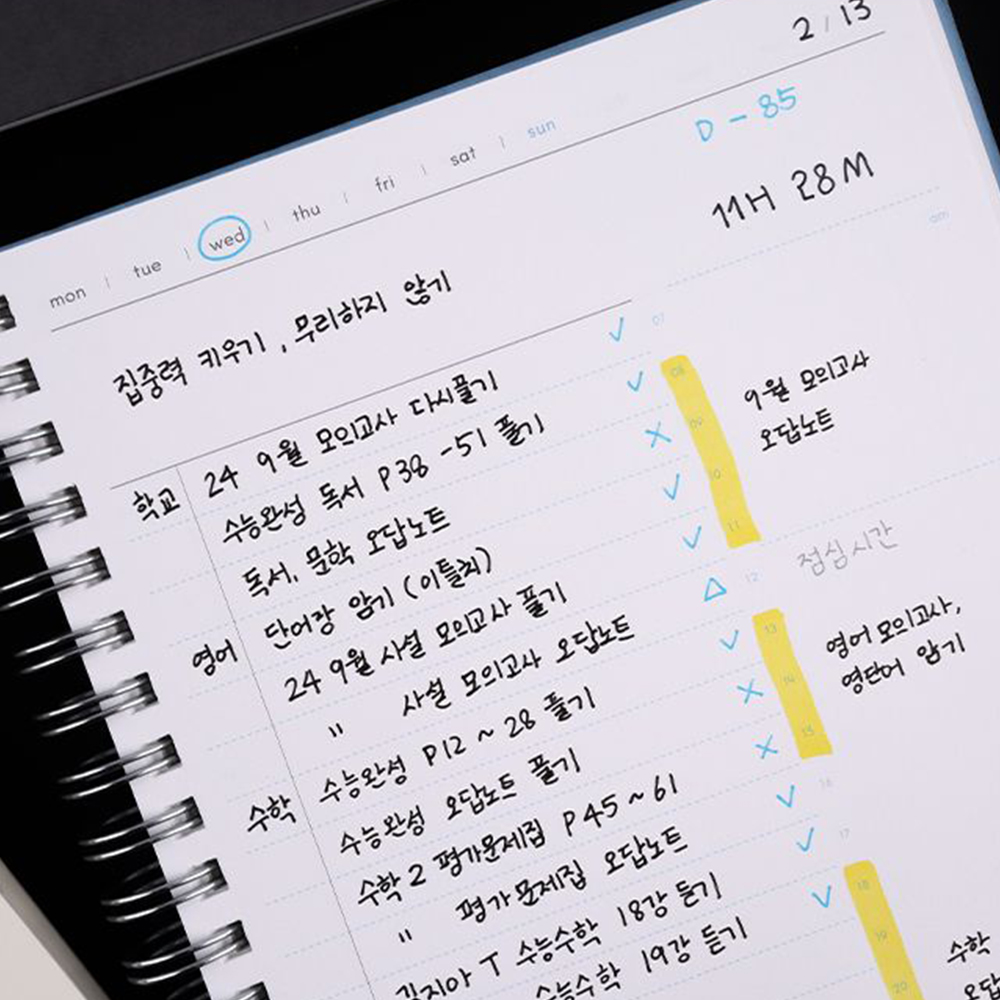 2 / 13
mon | tue | wed | thu | fri | sat | sun
D - 85
11H 28M
am
집중력 키우기, 무리하지 않기
학교
24 9월 모의고사 다시풀기 ✓
수능완성 독서 P38 -51 풀기 ✓
독서, 문학 오답노트 ×
영어
단어장 암기 (이틀치) ✓
24 9월 사설 모의고사 풀기 ✓
" 사설 모의고사 오답노트 △
수학
수능완성 P12 ~ 28 풀기 ✓
수능완성 오답노트 풀기 ×
수학2 평가문제집 P45 ~ 61 ×
" 평가문제집 오답노트 ✓
김지아 T 수능수학 18강 듣기 ✓
수능수학 19강 듣기 ✓
07
08
09
10
11
12
13
14
15
16
17
18
19
20
9월 모의고사
오답노트
점심시간
영어 모의고사,
영단어 암기
수학